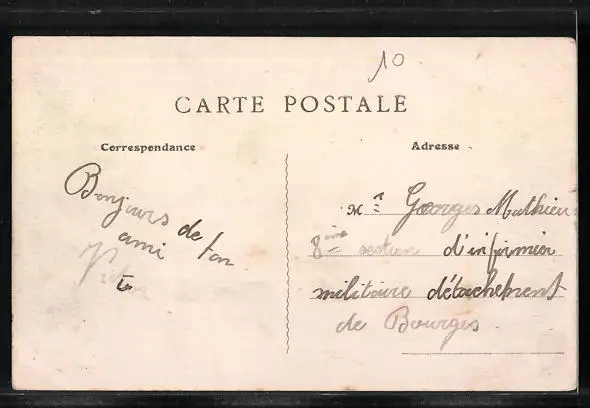 10
CARTE POSTALE
Correspondance
Bonjours de ton
ami
Adresse
Mr Georges Mathieu
8ème section d'infirmier
militaire détachement
de Bourges